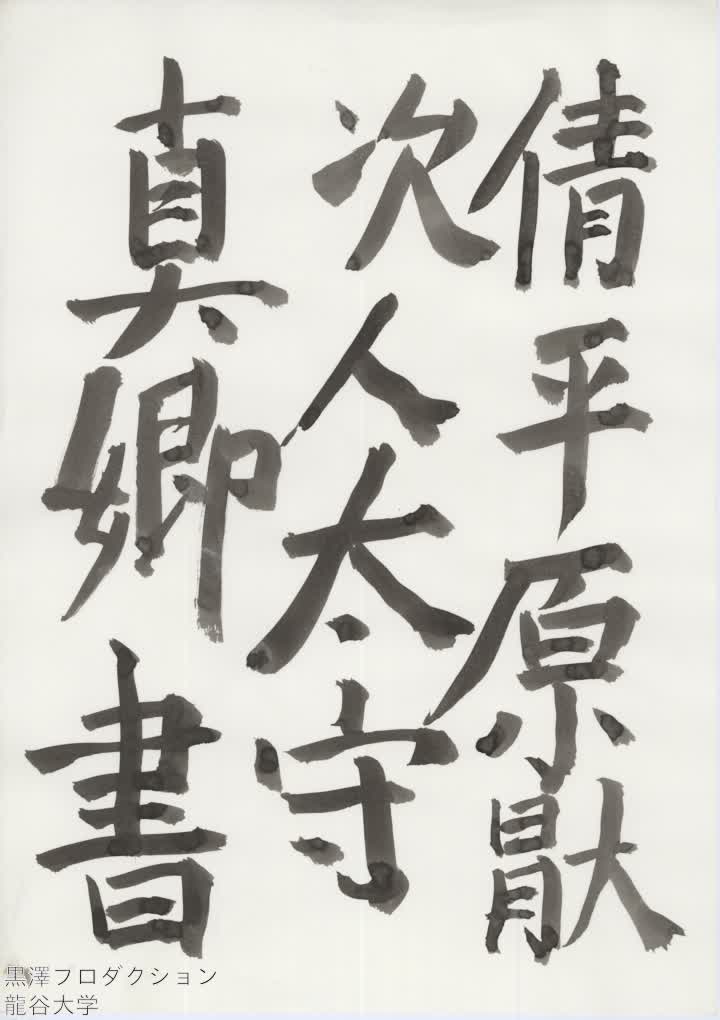 倩平原猒
次人太守
真卿書
黒澤フロダクション
龍谷大学